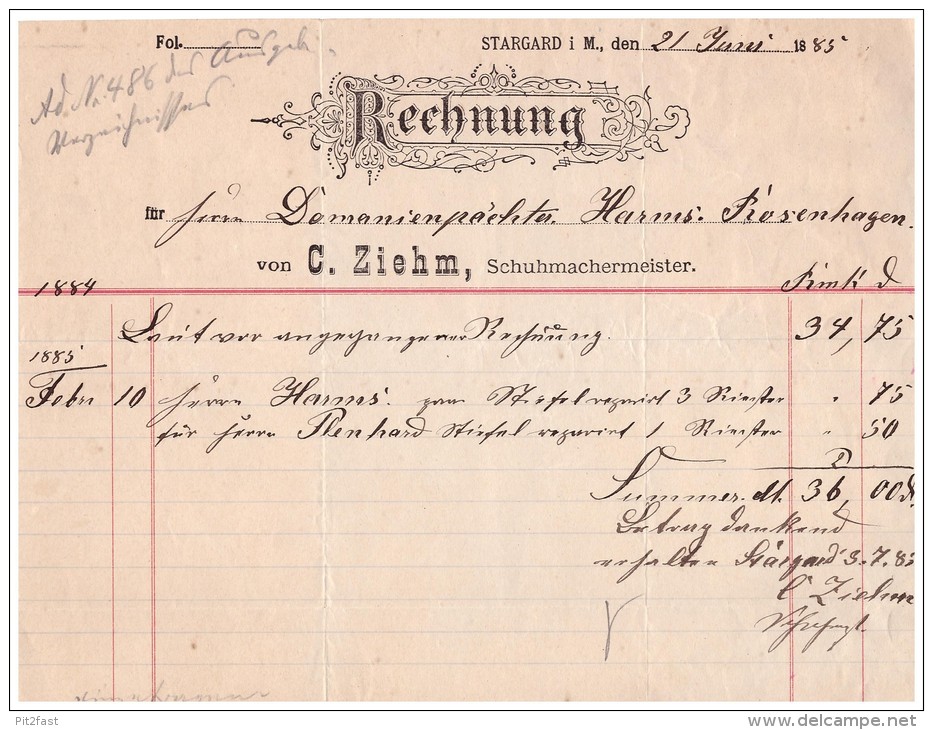 Fol.
STARGARD i M., den 21 Juni 1885
Ad. No. 486 des Ausgabe
Verzeichnisses
Rechnung
für Herrn Domanienpächter Harms. Rosenhagen.
von C. Ziehm, Schuhmachermeister.
1884
Laut vor angegangener Rechnung. 34,75
1885
Febr 10 Herrn Harms. paar Stiefel reparirt 3 Riester " 75
für Herrn Plenhard Stiefel reparirt 1 Riester " 50
Summer. M. 36,00 d.
Betrag dankend
erhalten Stargard 3.7.85
C Ziehm
Pit2fast
www.delcampe.net